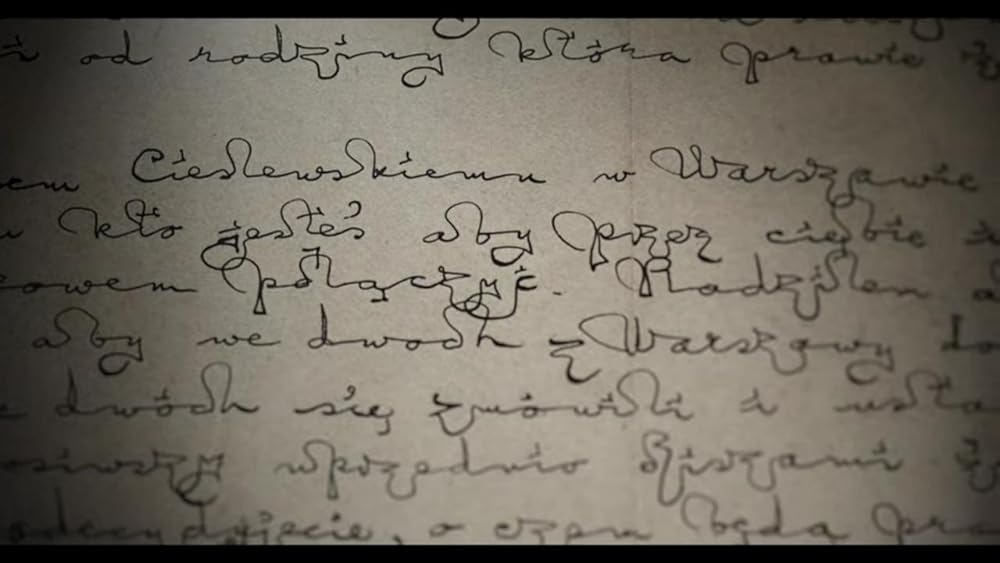 i od rodziny która prawie
em Cieslewskiemu w Warszawie
kto jesteś aby przez ciebie
owem połączyć. Radziłem
aby we dwoch z Warszawy do
dwóch się zmówili i
wprzednio
decydyjecie, o czem będą